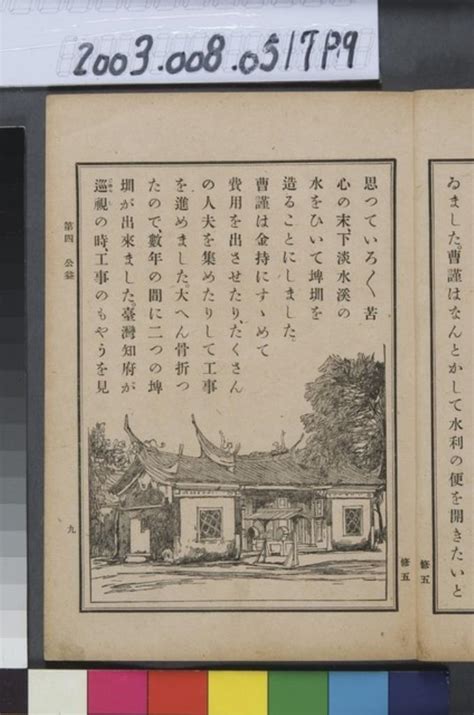 2003.008.0517P9
ゐました。曹謹はなんとかして水利の便を開きたいと
修五
思っていろ〳〵苦
心の末、下淡水溪の
水をひいて埤圳を
造ることにしました。
曹謹は金持にすゝめて
費用を出させたり、たくさん
の人夫を集めたりして工事
を進めました。大へん骨折つ
たので、數年の間に二つの埤
圳が出來ました。臺灣知府が
巡視の時、工事のもやうを見
第四 公益
九
修五